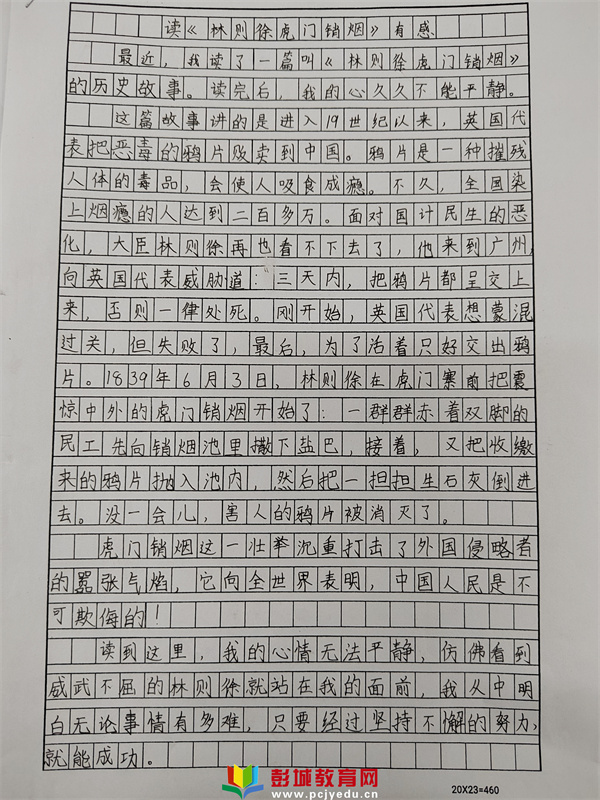 读《林则徐虎门销烟》有感
最近，我读了一篇叫《林则徐虎门销烟》
的历史故事。读完后，我的心久久不能平静。
这篇故事讲的是进入19世纪以来，英国代
表把恶毒的鸦片贩卖到中国。鸦片是一种摧残
人体的毒品，会使人吸食成瘾。不久，全国染
上烟瘾的人达到二百多万。面对国计民生的恶
化，大臣林则徐再也看不下去了，他来到广州，
向英国代表威胁道：三天内，把鸦片都呈交上
来，否则一律处死。刚开始，英国代表想蒙混
过关，但失败了，最后，为了活着只好交出鸦
片。1839年6月3日，林则徐在虎门寨前把震
惊中外的虎门销烟开始了：一群群赤着双脚的
民工先向销烟池里撒下盐巴，接着，又把收缴
来的鸦片抛入池内，然后把一担担生石灰倒进
去。没一会儿，害人的鸦片被消灭了。
虎门销烟这一壮举沉重打击了外国侵略者
的嚣张气焰，它向全世界表明，中国人民是不
可欺侮的！
读到这里，我的心情无法平静，仿佛看到
威武不屈的林则徐就站在我的面前，我从中明
白无论事情有多难，只要经过坚持不懈的努力，
就能成功。
彭城教育网
www.pcjyedu.cn
20X23=460